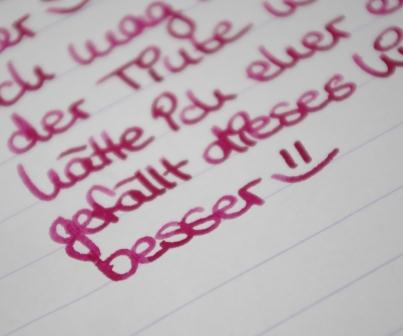 er :)
ch mag
der Tinte
hätte ich eher e
gefällt dieses
besser =)